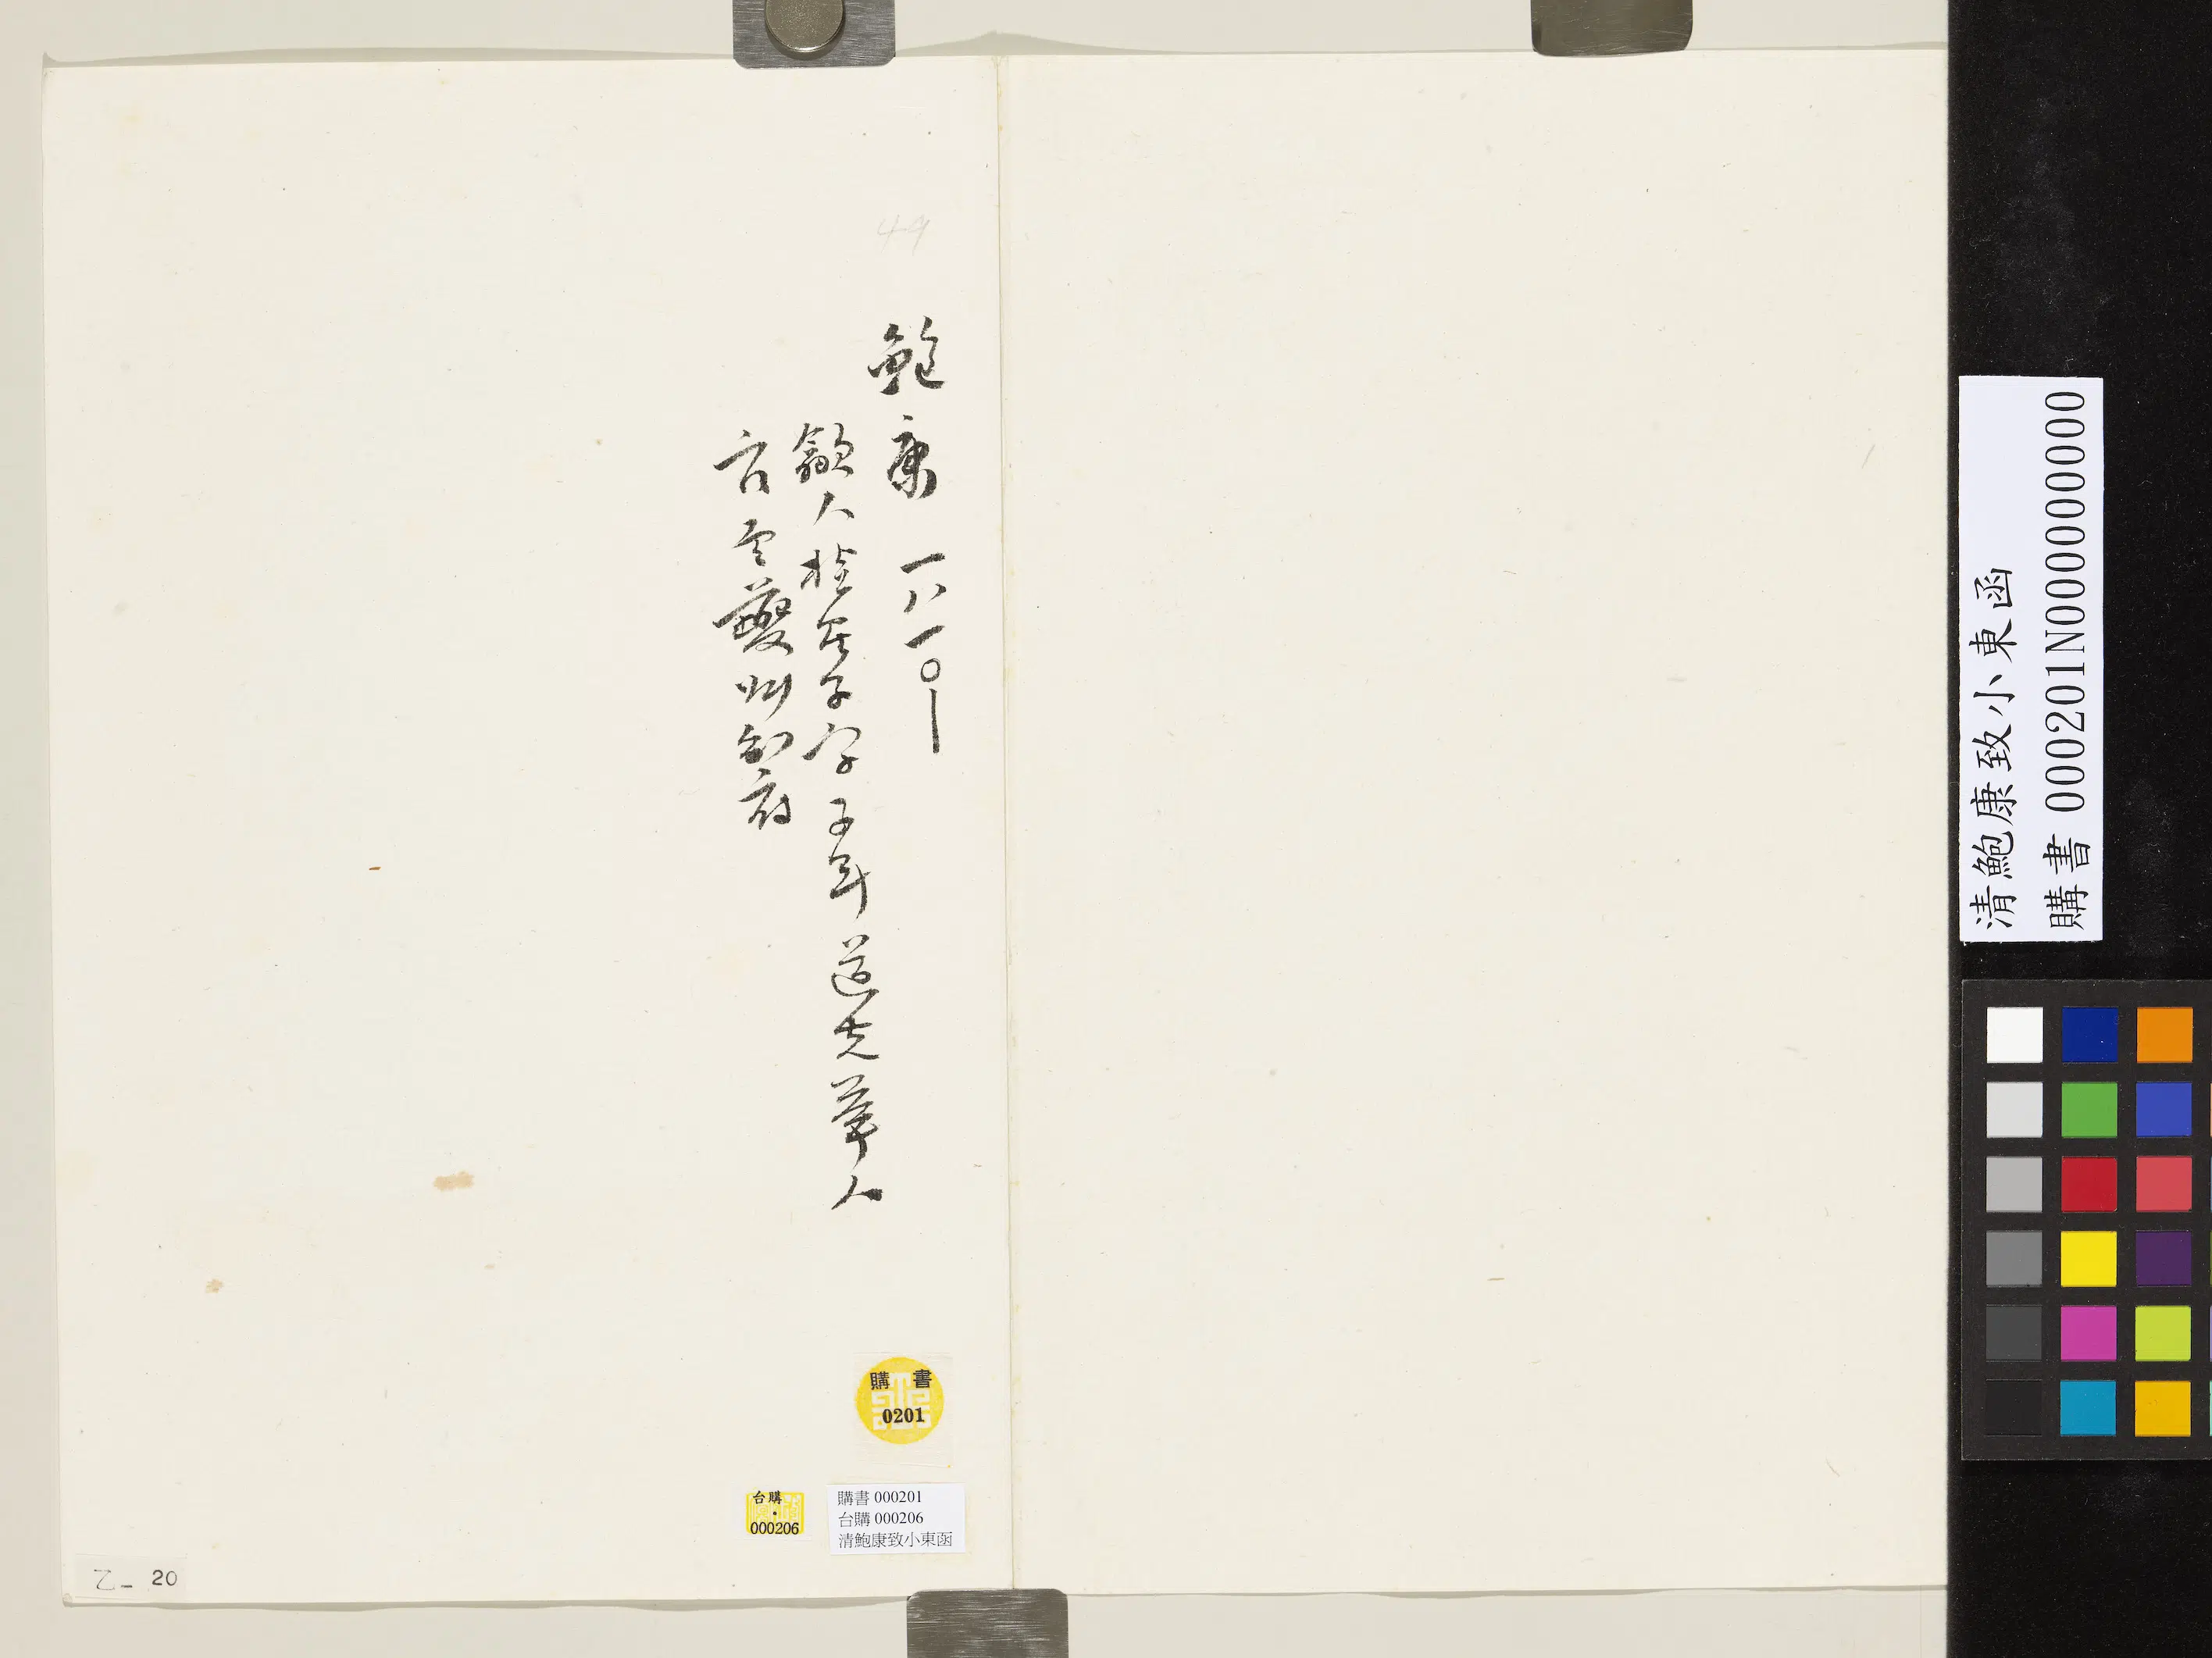 鮑康 一八一〇—
歙人桂星子字子年道光舉人
官至夔州知府
購書
0201
台購
000206
購書 000201
台購 000206
清鮑康致小東函
乙- 20
清鮑康致小東函
購書 000201N000000000